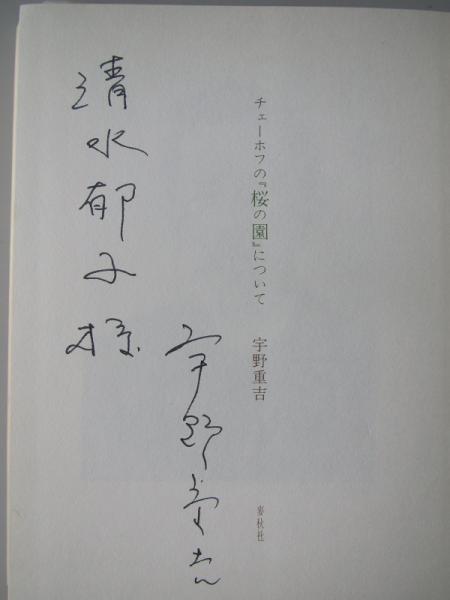 チェーホフの『桜の園』について
宇野重吉
麥秋社
宇野重吉
清水郁子様